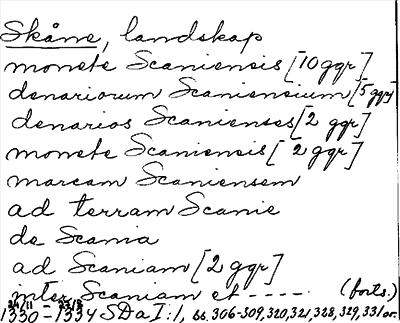 Skåne, landskap
monete Scaniensis [10 ggr]
denariorum Scaniensium [5 ggr]
denarios Scanienses [2 ggr]
monete Scaniensis [2 ggr]
marcam Scaniensem
ad terram Scanie
de Scania
ad Scaniam [2 ggr]
inter Scaniam et ----- (forts.)
24/11 23/3
1330-1334 SDa I:1, ss. 306-309, 320, 321, 328, 329, 331 or.